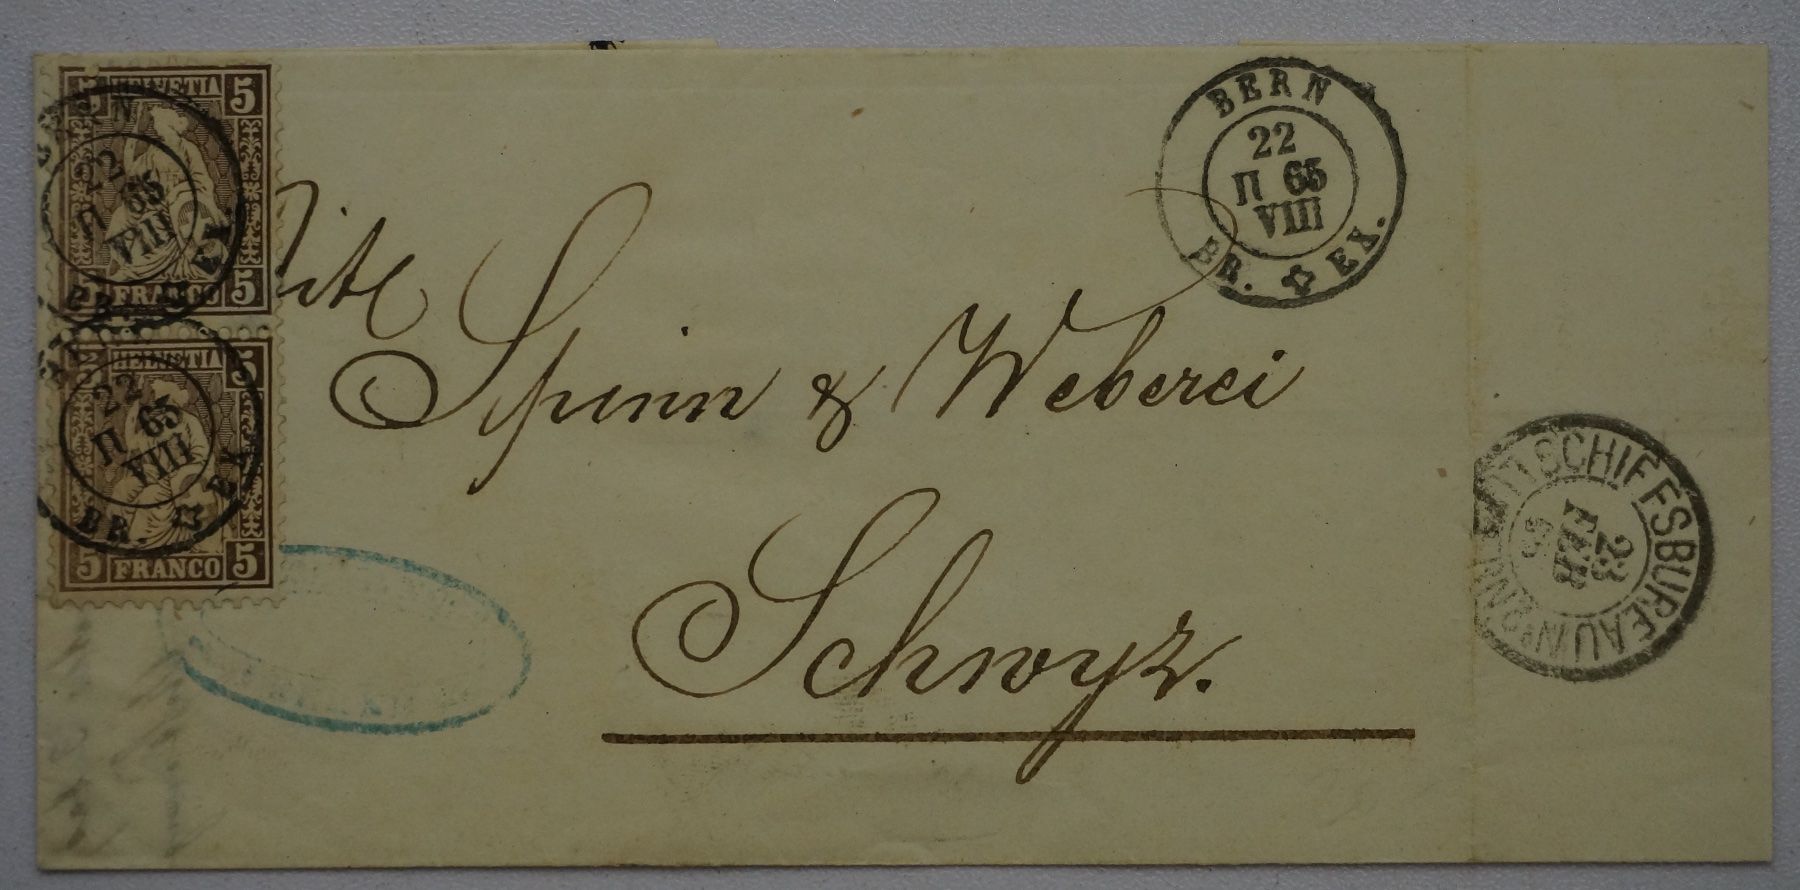 5 HELVETIA 5
5 FRANCO 5
5 HELVETIA 5
5 FRANCO 5
BERN
22
II 65
VIII
BR. EX.
22
II 65
VIII
BR. EX
BERN
22
II 65
VIII
BR. EX.
Titl
Spinn & Weberei
Schwyz.
SCHIFFSBUREAU No
23
FEB
65